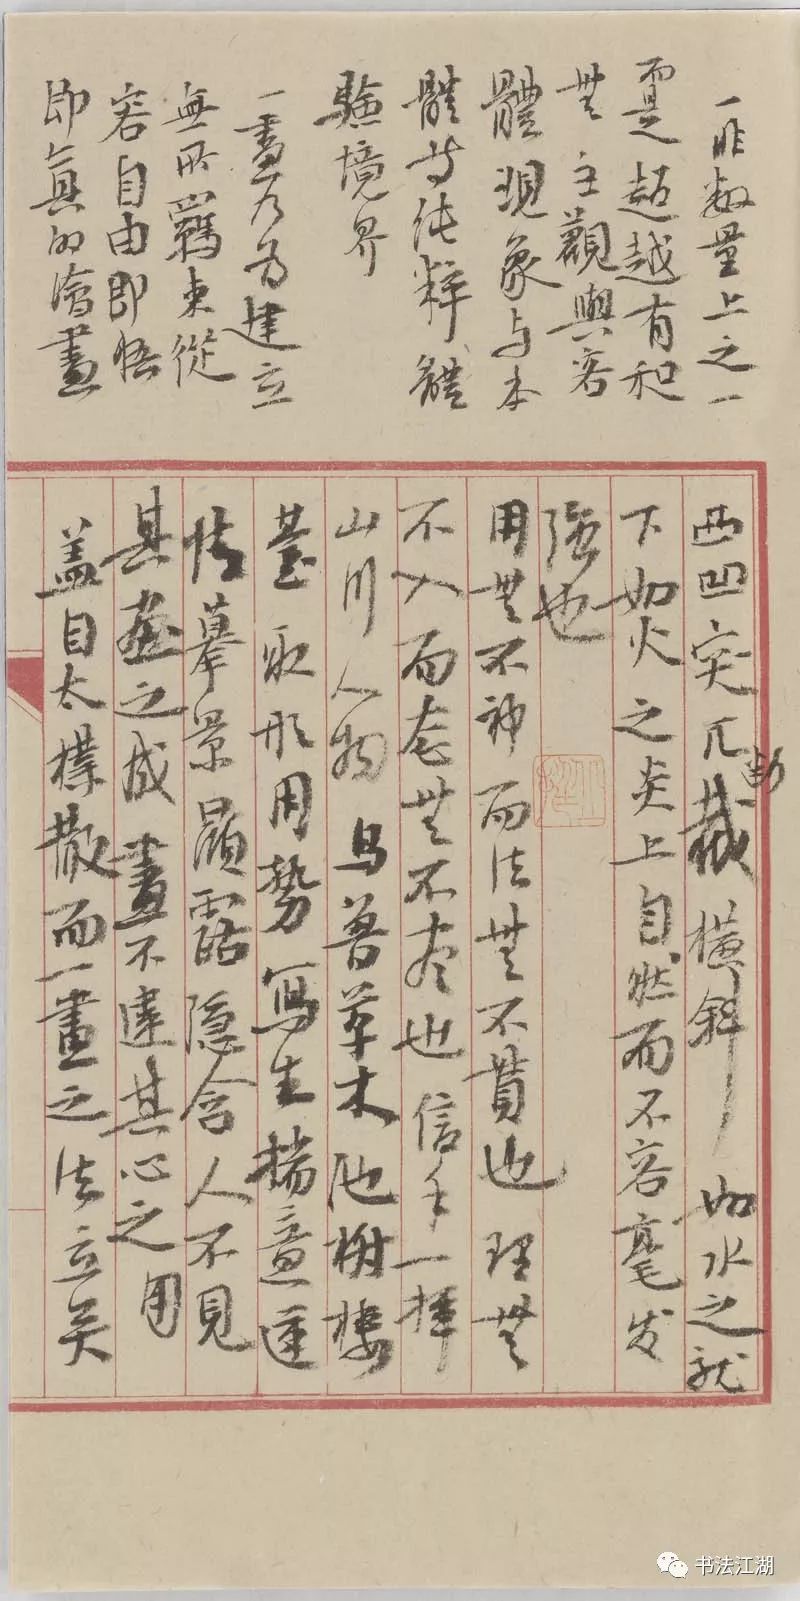 一非数量上之一
而是超越有和
無主觀與客
體現象与本
體等纯粹體
驗境界
一畫乃为建立
無所羈束從
容自由即悟
即真的繪畫
凸凹突兀断截橫斜如水之就
下如火之炎上自然而不容毫发
强也
用無不神而法無不貫也理無
不入而态無不尽也信手一揮
山川人物鸟兽草木池榭楼
臺取形用势寫生揣意運
情摹景顯露隐含人不見
其畫之成畫不違其心之用
蓋自太樸散而一畫之法立矣
书法江湖